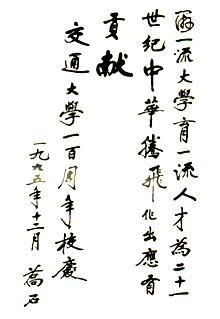 办一流大學育一流人才為二十一
世纪中華騰飛作出應有
貢献
交通大學一百周年校慶
一九九五年十二月 萬石